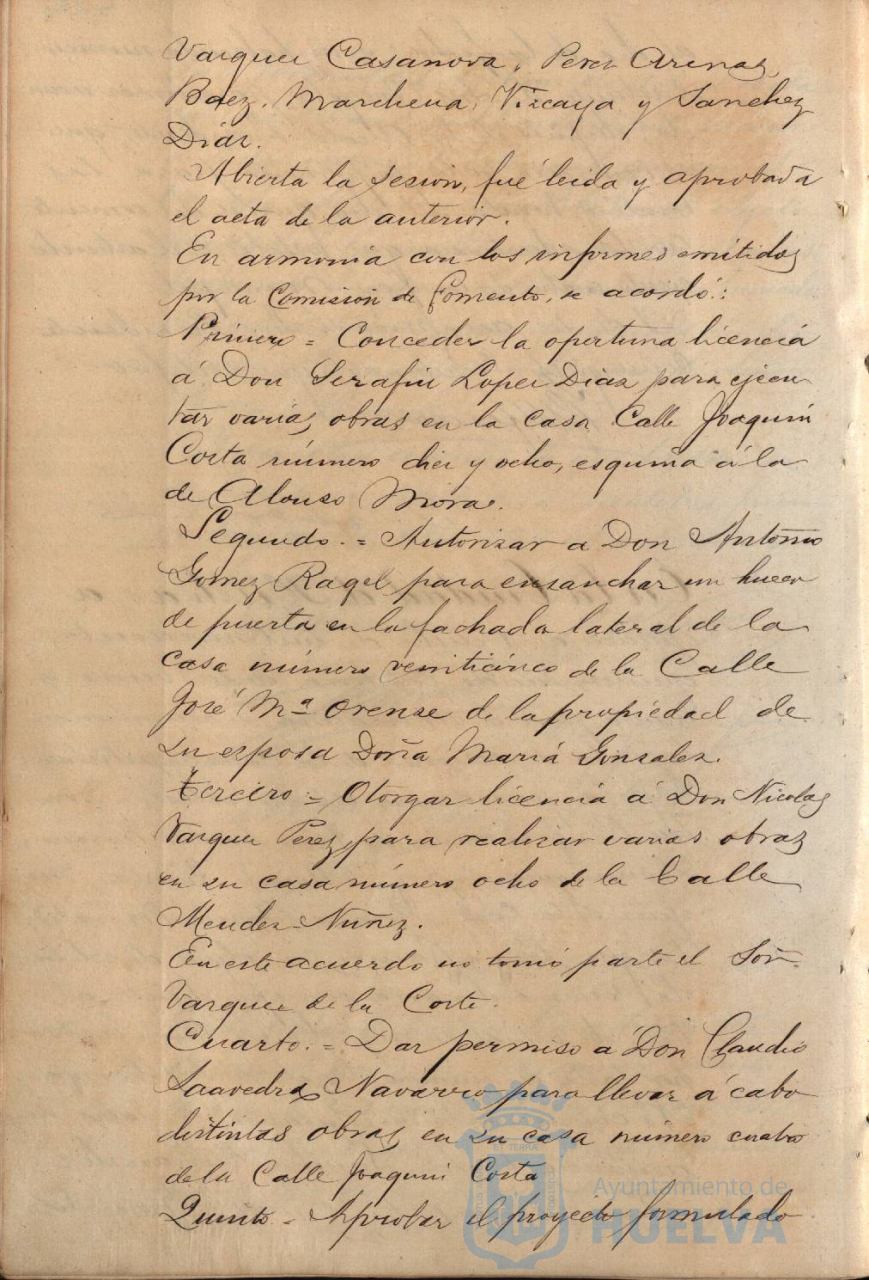 Vazquez Casanova, Perez Arenas,
Baez, Marchena, Vizcaya y Sanchez
Diaz.
Abierta la sesion, fué leida y aprobada
el acta de la anterior.
En armonia con los informes emitidos
por la Comision de Fomento, se acordó:
Primero = Conceder la oportuna licencia
á Don Serafin Lopez Diaz para ejecu-
tar varias obras en la casa Calle Joaquin
Costa número diez y ocho, esquina á la
de Alonso Mora.
Segundo. = Autorizar a Don Antonio
Gomez Ragel para ensanchar un hueco
de puerta en la fachada lateral de la
casa número veinticinco de la Calle
José Mª Orense de la propiedad de
su esposa Doña Maria Gonzalez.
Tercero = Otorgar licencia á Don Nicolas
Vazquez Perez, para realizar varias obras
en su casa número ocho de la Calle
Mendez Nuñez.
En este acuerdo no tomó parte el Señ
Vazquez de la Corte.
Cuarto. = Dar permiso a Don Claudio
Saavedra Navarro para llevar á cabo
distintas obras en su casa número cuatro
de la Calle Joaquin Costa
Quinto = Aprobar el proyecto formulado
Ayuntamiento de
HUELVA